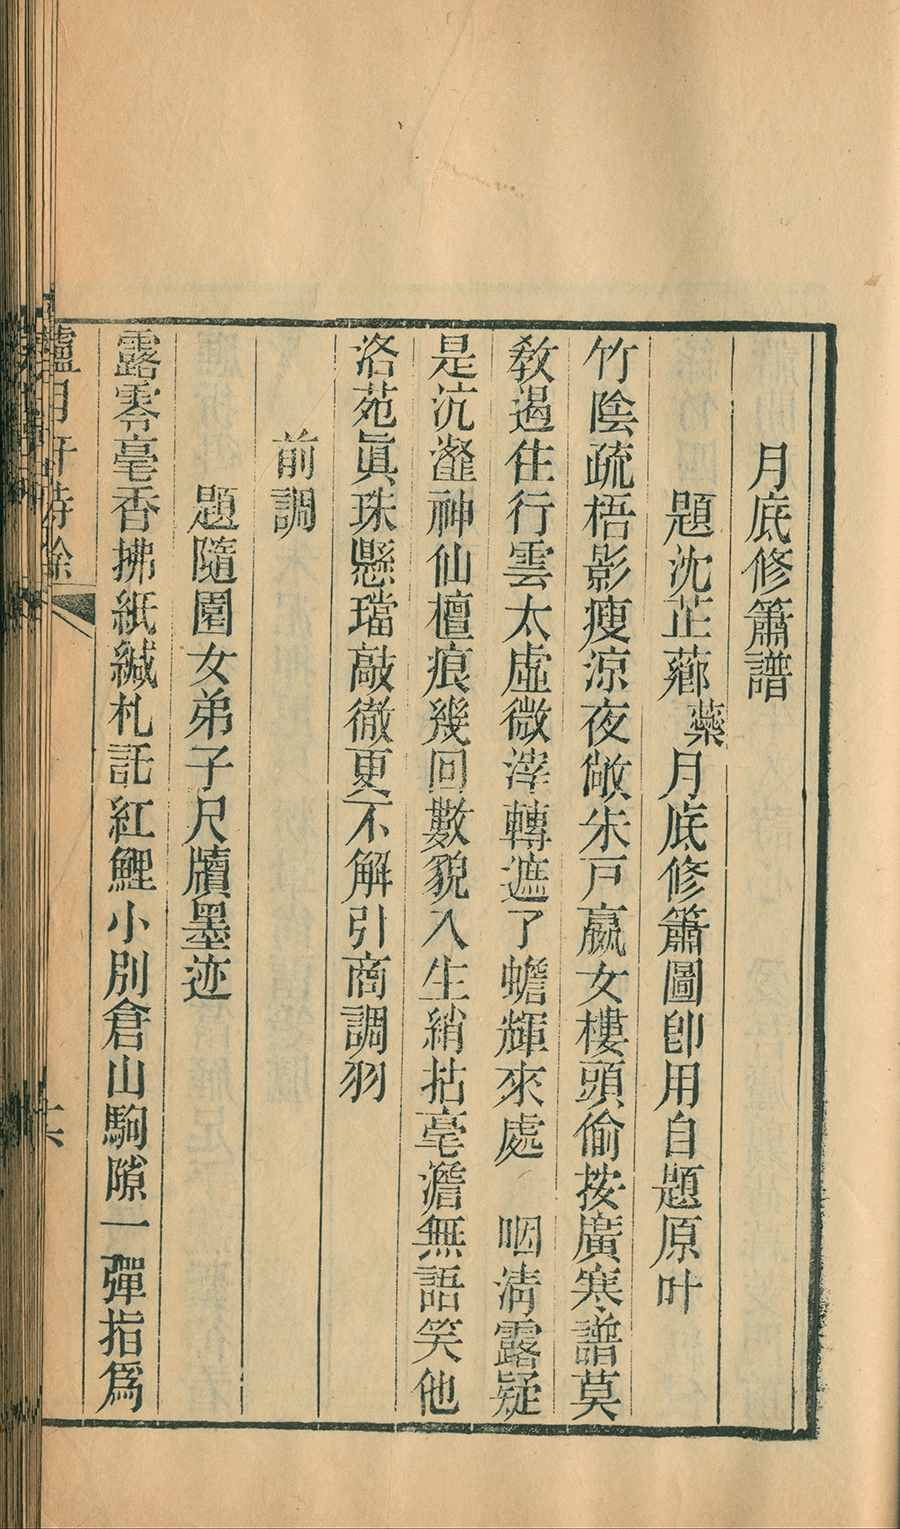 月底修簫譜
題沈芷薌蘂月底修簫圖卽用自題原叶
竹陰疏梧影瘦涼夜敞朱戸嬴女樓頭偷按廣寒譜莫
敎遏住行雲太虛微滓轉遮了蟾輝來處　咽淸露疑
是沆瀣神仙檀痕幾回數貌入生綃拈毫澹無語笑他
洛苑眞珠懸璫敲徹更不解引商調羽
前調
題隨園女弟子尺牘墨迹
露零毫香拂紙緘札託紅鯉小別倉山駒隙一彈指爲
月 詩餘